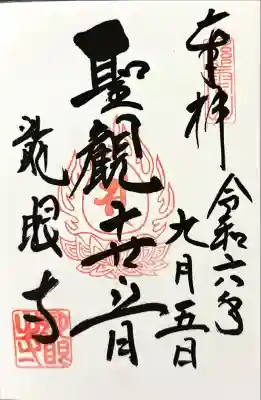 奉拝
令和六年
九月五日
聖観世音
龍眼寺